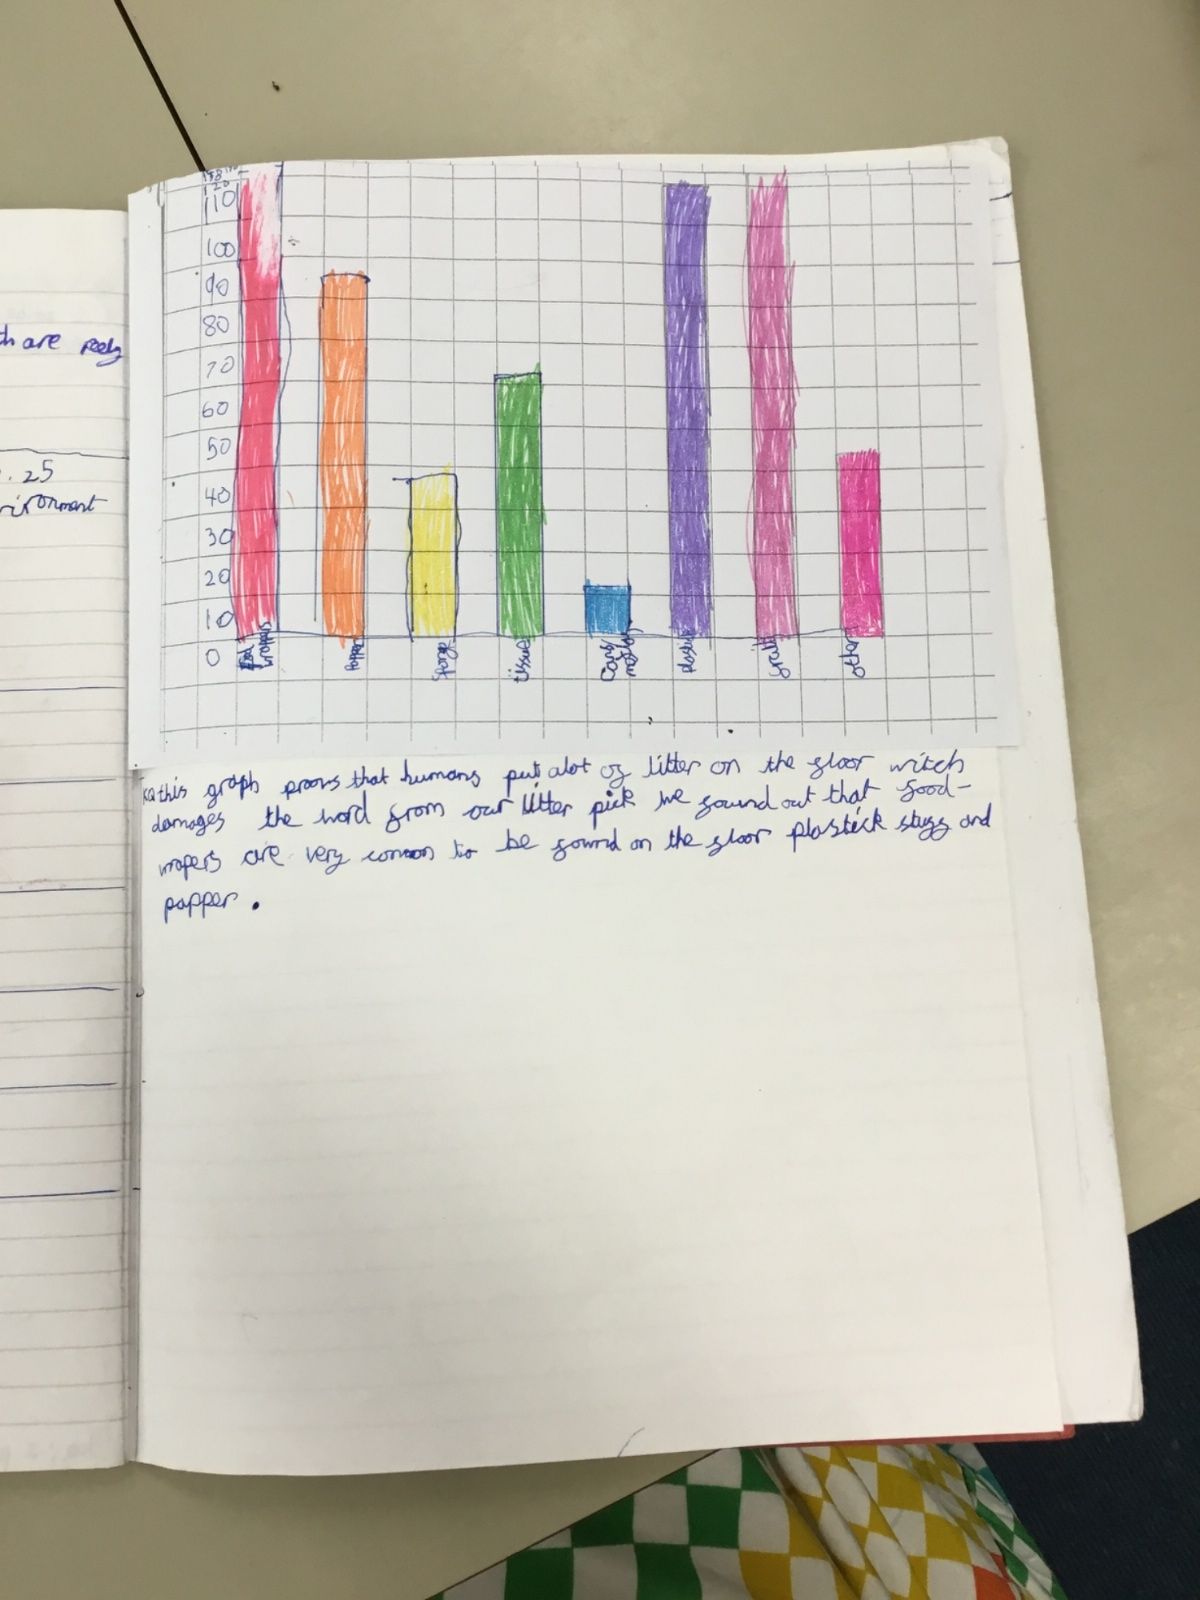 th are reely
. 25
vironment
120
110
100
90
80
70
60
50
40
30
20
10
0
wrappers
papper
tissue
plastick
other
this graph proovs that humans put alot of litter on the floor witch
damages the word from our litter pick we found out that food-
wrapers are very common to be found on the floor plastick stuff and
papper.